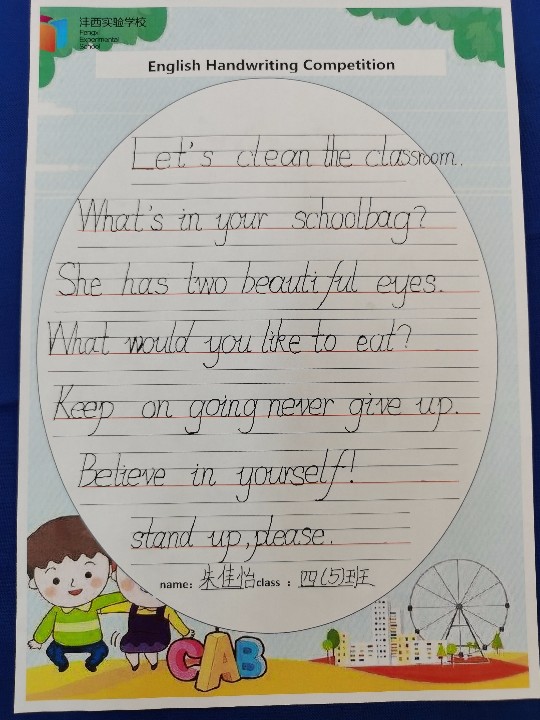 沣西实验学校
Fengxi
Experimental
School
English Handwriting Competition
Let's clean the classroom.
What's in your schoolbag?
She has two beautiful eyes.
What would you like to eat?
Keep on going never give up.
Believe in yourself!
stand up, please.
name: 朱佳怡 class : 四(5)班
CAB